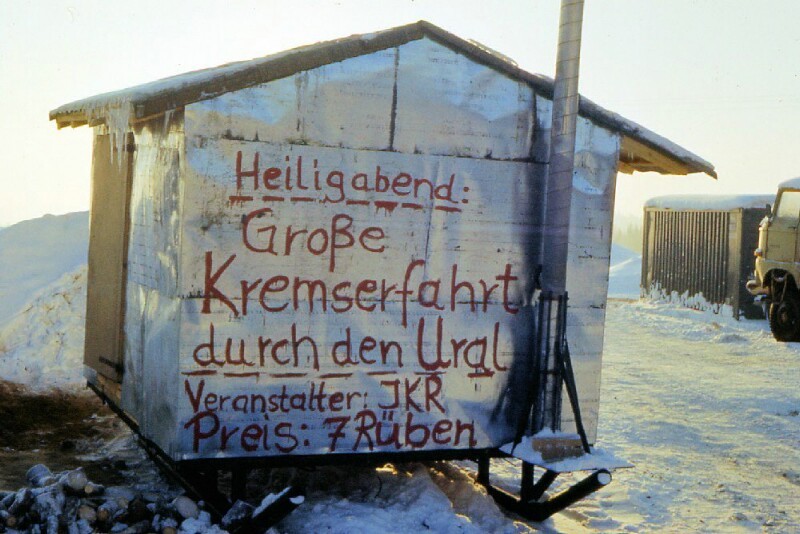 Heiligabend:
Große
Kremserfahrt
durch den Ural
Veranstalter: JKR
Preis: 7 Rüben